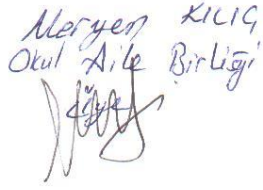 Meryem KILIÇ
Okul Aile Birliği
Üye